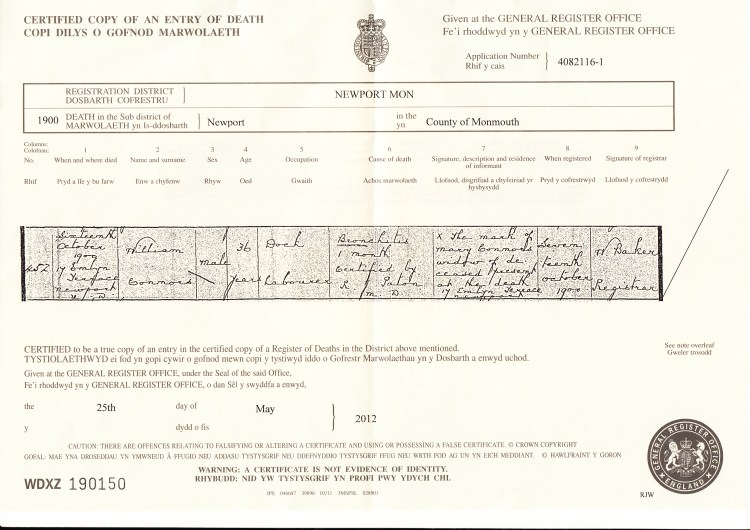 CERTIFIED COPY OF AN ENTRY OF DEATH
COPI DILYS O GOFNOD MARWOLAETH
Given at the GENERAL REGISTER OFFICE
Fe'i rhoddwyd yn y GENERAL REGISTER OFFICE
Application Number
Rhif y cais
4082116-1
REGISTRATION DISTRICT
DOSBARTH COFRESTRU
NEWPORT MON
1900 DEATH in the Sub district of
MARWOLAETH yn Is-ddosbarth
Newport
in the
yn
County of Monmouth
Columns:
Colofnau:
1 2 3 4 5 6 7 8 9
No. When and where died Name and surname Sex Age Occupation Cause of death Signature, description and residence of informant When registered Signature of registrar
Rhif Pryd a lle y bu farw Enw a chyfenw Rhyw Oed Gwaith Achos marwolaeth Llofnod, disgrifiad a chyfeiriad yr hysbysydd Pryd y cofrestrwyd Llofnod y cofrestrydd
457
Sixteenth
October
1900
17 Emlyn
Terrace
Newport
U. D.
William
Connors
male
36
years
Dock
Labourer
Bronchitis
1 month
Certified by
Paton
M. D.
X The mark of
Mary Connors
widow of de
ceased present
at the death
17 Emlyn Terrace
Newport
Seven
teenth
October
1900
W Baker
Registrar
CERTIFIED to be a true copy of an entry in the certified copy of a Register of Deaths in the District above mentioned.
TYSTIOLAETHWYD ei fod yn gopi cywir o gofnod mewn copi y tystiwyd iddo o Gofrestr Marwolaethau yn y Dosbarth a enwyd uchod.
Given at the GENERAL REGISTER OFFICE, under the Seal of the said Office,
Fe'i rhoddwyd yn y GENERAL REGISTER OFFICE, o dan Sêl y swyddfa a enwyd,
See note overleaf
Gweler trosodd
the 25th day of May 2012
y dydd o fis
CAUTION: THERE ARE OFFENCES RELATING TO FALSIFYING OR ALTERING A CERTIFICATE AND USING OR POSSESSING A FALSE CERTIFICATE. © CROWN COPYRIGHT
GOFAL: MAE YNA DROSEDDAU YN YMWNEUD Â FFUGIO NEU ADDASU TYSTYSGRIF NEU DDEFNYDDIO TYSTYSGRIF FFUG NEU WRTH FOD AG UN YN EICH MEDDIANT. © HAWLFRAINT Y GORON
WARNING: A CERTIFICATE IS NOT EVIDENCE OF IDENTITY.
RHYBUDD: NID YW TYSTYSGRIF YN PROFI PWY YDYCH CHI.
WDXZ 190150
GENERAL REGISTER OFFICE
ENGLAND
RJW